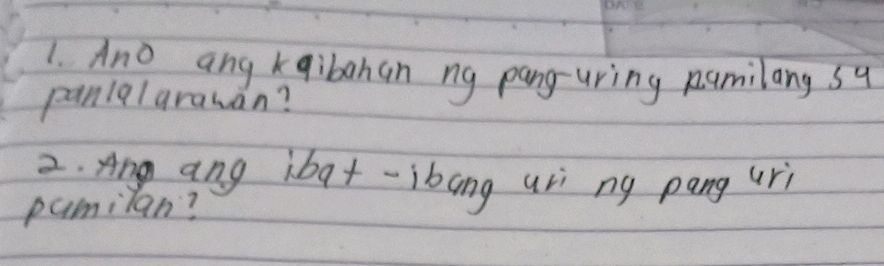 1. Ano ang kaibahan ng pang-uring pamilang sa
panlalarawan?
2. Ang ang ibat-ibang uri ng pang uri
pamilan?